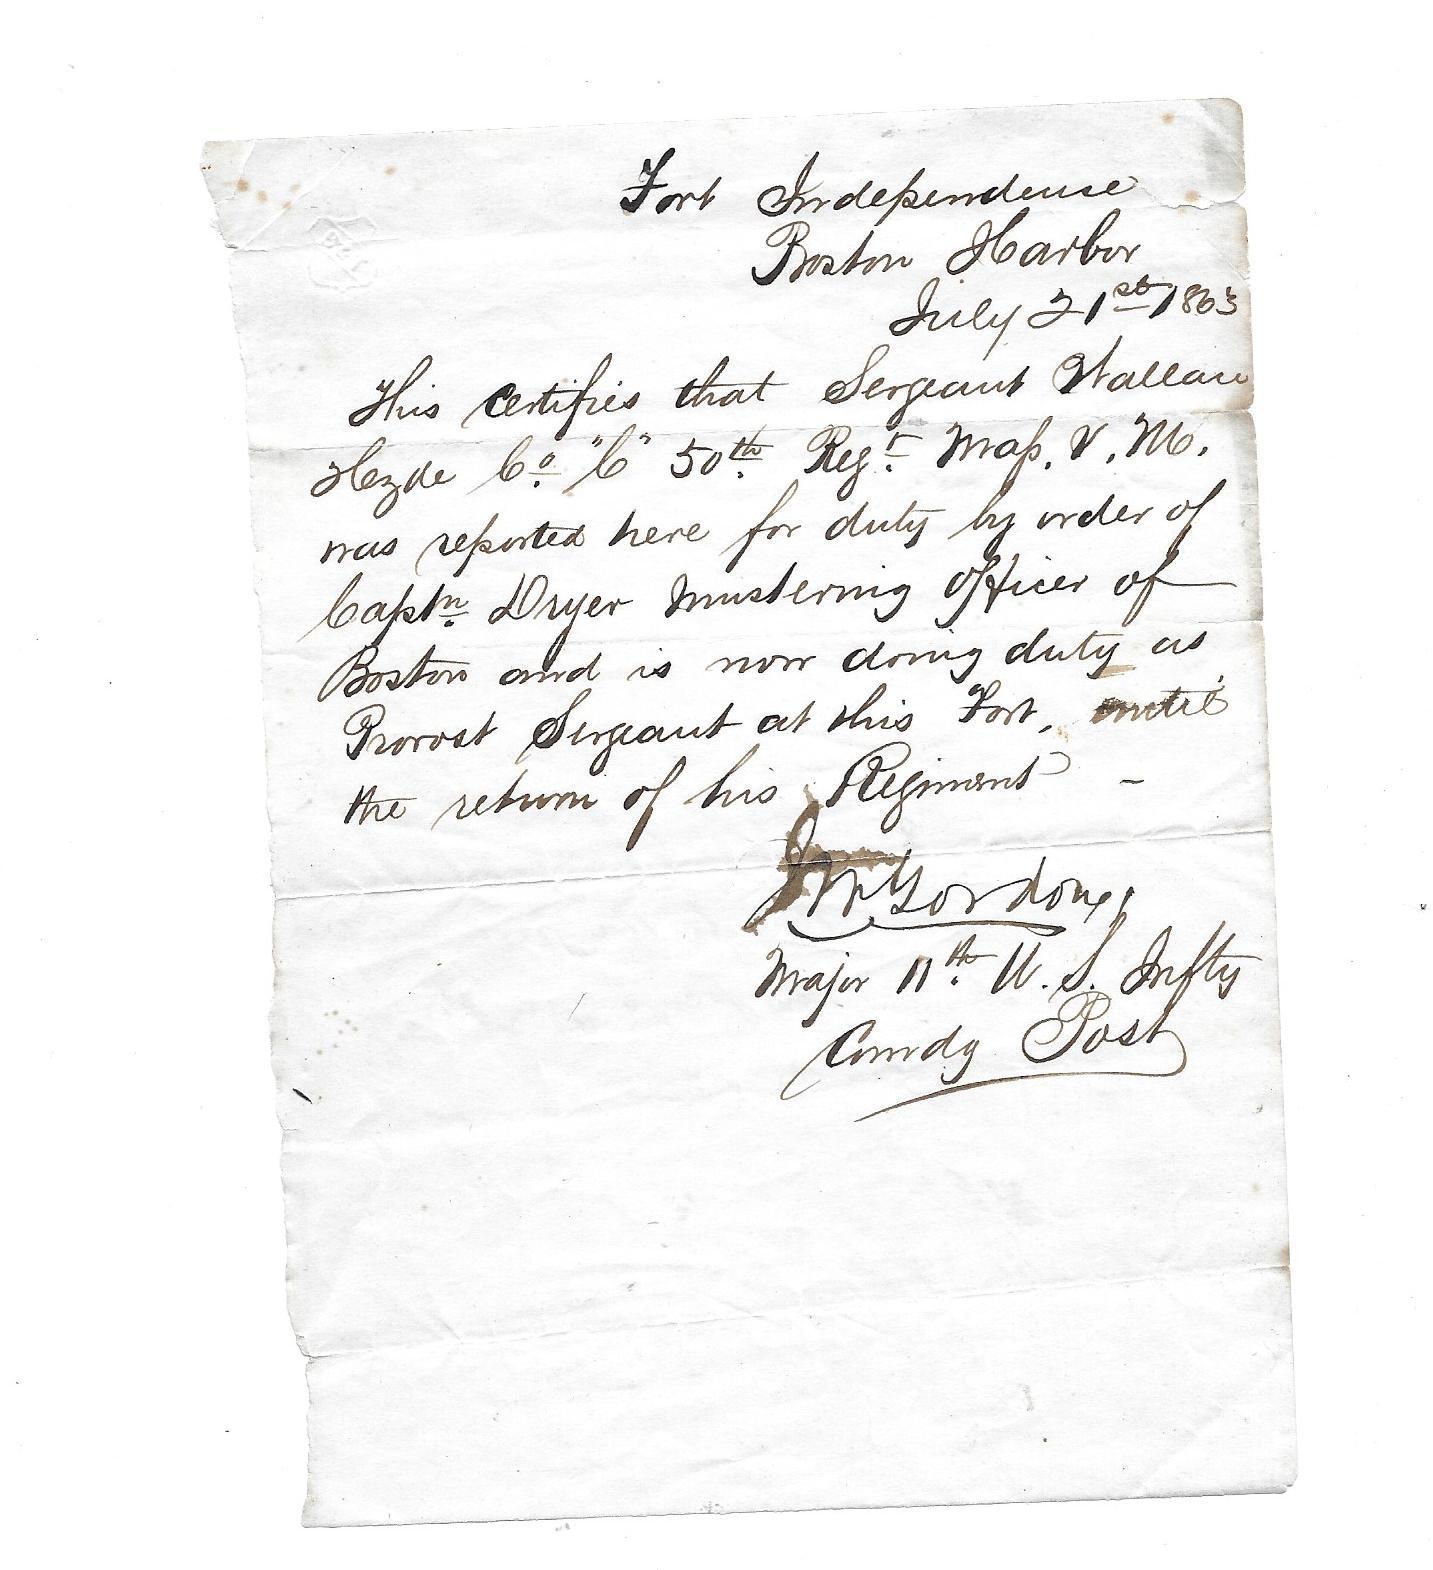 Fort Independence
Boston Harbor
July 21st 1863
This certifies that Sergeant Wallace
Hyde Co. "C" 50th Regt. Mass. V. M.
was reported here for duty by order of
Captn. Dryer Mustering Officer of
Boston and is now doing duty as
Provost Sergeant at this Fort, until
the return of his Regiment -
Gordon
Major 11th U. S. Infty
Comdg Post